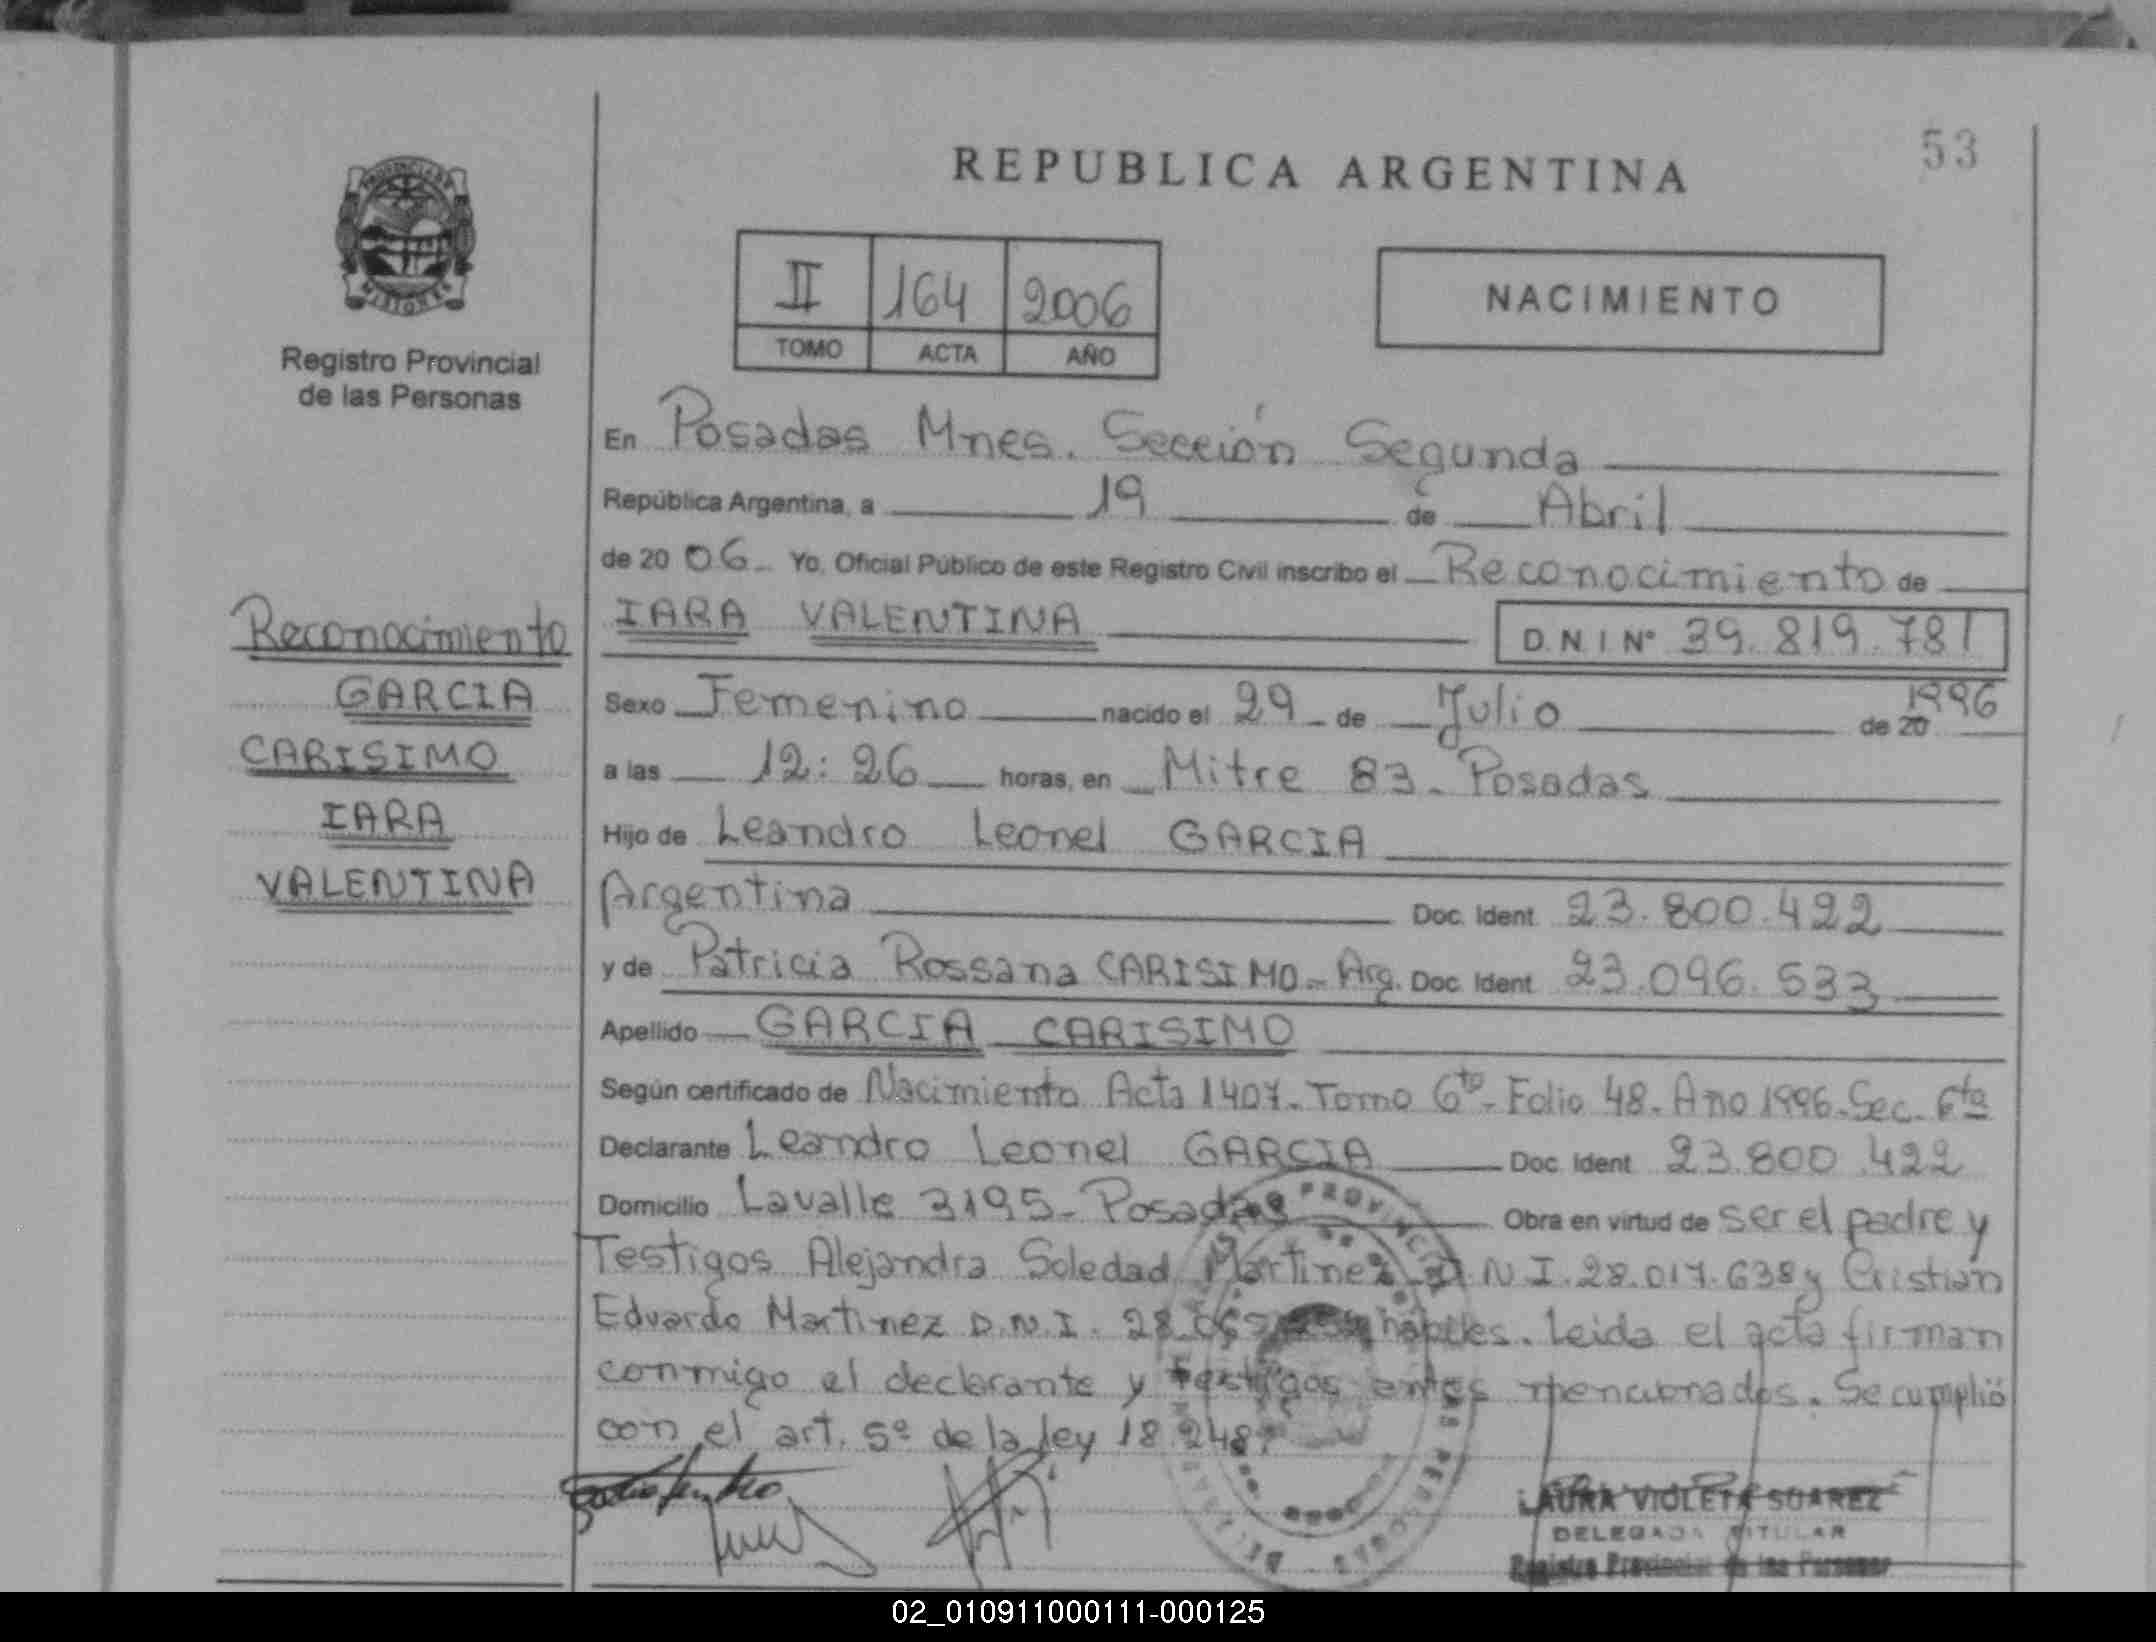 53
REPUBLICA ARGENTINA
PROVINCIA DE
MISIONES
Registro Provincial
de las Personas
II 164 2006
TOMO ACTA AÑO
NACIMIENTO
En Posadas Mnes. Sección Segunda
República Argentina, a 19 de Abril
de 20 06 Yo, Oficial Público de este Registro Civil inscribo el Reconocimiento de
IARA VALENTINA D.N.I Nº 39.819.781
Sexo Femenino nacido el 29 de Julio de 20 1996
a las 12:26 horas, en Mitre 83 - Posadas
Hijo de Leandro Leonel GARCIA
Argentina Doc. Ident. 23.800.422
y de Patricia Rossana CARISIMO - Arg. Doc. Ident. 23.096.533
Apellido GARCIA CARISIMO
Según certificado de Nacimiento Acta 1407. Tomo 6to - Folio 48. Año 1996. Sec. 6ta
Declarante Leandro Leonel GARCIA Doc. Ident. 23.800.422
Domicilio Lavalle 3195 - Posadas Obra en virtud de ser el padre y
Testigos Alejandra Soledad Martinez D.N.I. 28.017.638 y Cristian
Eduardo Martinez D.N.I. 28. hábiles. Leida el acta firman
conmigo el declarante y testigos antes mencionados. Se cumplió
con el art. 5º de la ley 18.248.
Reconocimiento
GARCIA
CARISIMO
IARA
VALENTINA
LAURA VIOLETA SUAREZ
DELEGADA TITULAR
Registro Provincial de las Personas
02_010911000111-000125